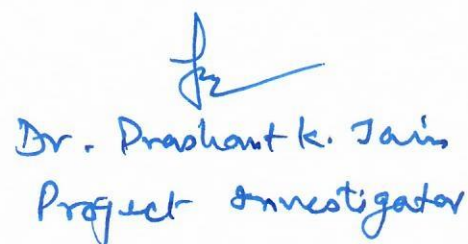 Dr. Prashant K. Jain
Project Investigator